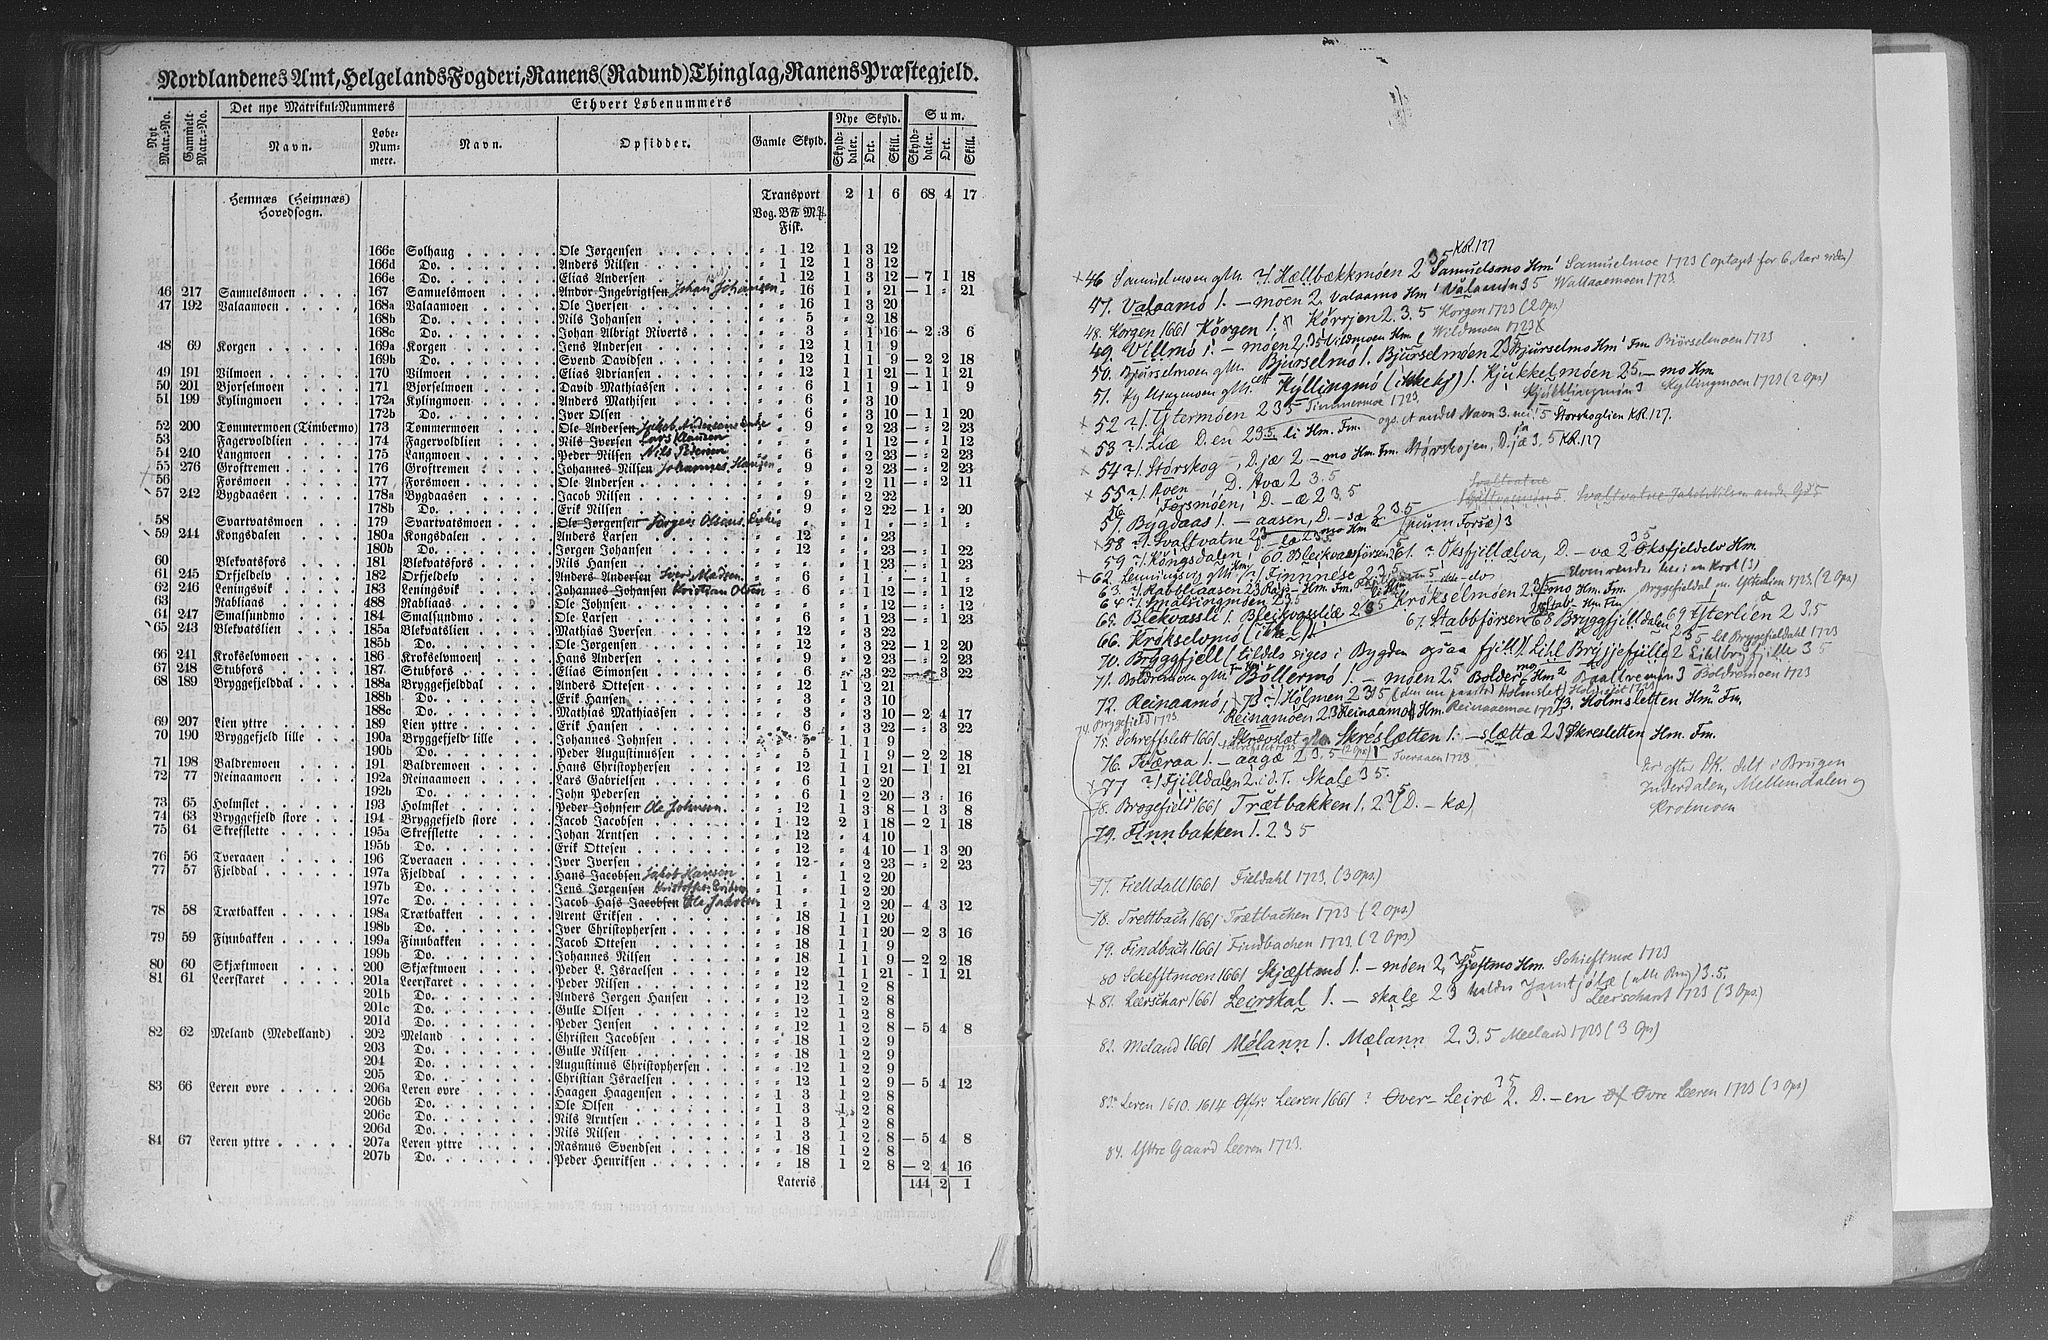 Nordlandenes Amt, Helgelands Fogderi, Ranens (Radund) Thinglag, Ranens Præstegjeld.
Nyt Matr.-No. Gammelt Matr.-No. Det nye Matrikul-Nummers Ethvert Løbenummers
Nye Skyld. Sum.
Navn. Løbe-Nummere. Navn. Opsidder. Gamle Skyld. Skylddaler. Ort. Skill. Skylddaler. Ort. Skill.
Hemnæs (Heimnæs) Hovedsogn. Transport 2 1 6 68 4 17
Vog. B℔ M℔. Fisk.
166c Solhaug Ole Jørgensen " 1 12 1 3 12
166d Do. Anders Nilsen " 1 12 1 3 12
166e Do. Elias Andersen " 1 12 1 3 12 — 7 1 18
46 217 Samuelsmoen 167 Samuelsmoen Andor Ingebrigtsen Johan Johansen " " 16 1 " 21 — 1 " 21
47 192 Valaamoen 168a Valaamoen Ole Iversen " " 16 1 3 20
168b Do. Nils Johansen " " 5 " 2 18
168c Do. Johan Albrigt Riverts " " 3 " 1 16 — 2 3 6
48 69 Korgen 169a Korgen Jens Andersen " " 12 1 1 9
169b Do. Svend Davidsen " " 12 1 1 9 — 2 2 18
49 191 Vilmoen 170 Vilmoen Elias Adriansen " " 12 1 1 21 — 1 1 21
50 201 Bjorselmoen 171 Bjorselmoen David Mathiassen " " 6 1 1 9 — 1 1 9
51 199 Kylingmoen 172a Kylingmoen Anders Mathisen " " 6 " 3 10
172b Do. Iver Olsen " " 6 " 3 10 — 1 1 20
52 200 Tommermoen (Timbermo) 173 Tommermoen Ole Andersen Jakob Andersens Enke " " 9 " 2 23 — " 2 23
53 Fagervoldlien 174 Fagervoldlien Nils Iversen Lars Klausen " " " " 1 12 — " 1 12
54 240 Langmoen 175 Langmoen Peder Nilsen Nils Pedersen " " 6 " 2 23 — " 2 23
55 276 Groftremen 176 Groftremen Johannes Nilsen Johannes Hansen " " " " 2 23 — " 2 23
56 Forsmoen 177 Forsmoen Ole Andersen " " " " 2 11 — " 2 11
57 242 Bygdaasen 178a Bygdaasen Jacob Nilsen " " 9 " 2 22
178b Do. Erik Nilsen " " 9 " 2 22 — 1 " 20
58 Svartvatsmoen 179 Svartvatsmoen Ole Jørgensen Jørgen Olsens Enke " " " " 1 " — " 1 "
59 244 Kongsdalen 180a Kongsdalen Anders Larsen " " 12 " " 23
180b Do. Jørgen Johansen " " 12 " " 23 — " 1 22
60 Blekvatsfors 181 Blekvatsfors Nils Hansen " " " " 1 23 — " 1 23
61 245 Oxfjeldelv 182 Oxfjeldelv Anders Andersen Sivert Madsen " " 6 " 1 " — " 1 "
62 246 Leningsvik 183 Leningsvik Johannes Johansen Kristian Olsen " " 6 " 1 12 — " 1 12
63 Rabliaas 488 Rabliaas Ole Johnsen " " " " " 12 — " " 12
64 247 Smalsundmo 184 Smalsundmo Ole Larsen " " 6 " 1 23 — " 1 23
65 243 Blekvatslien 185a Blekvatslien Mathias Iversen " " 12 " 3 22
185b Do. Ole Jørgensen " " 12 " 3 22 — 1 2 20
66 241 Krokselvmoen 186 Krokselvmoen Hans Andersen " " 9 " 2 23 — " 2 23
67 248 Stubfors 187 Stubfors Elias Simonsen " " 6 " 3 22 — " 3 22
68 189 Bryggefjelddal 188a Bryggefjelddal Anders Ottesen " 1 12 1 2 21
188b Do. Erik Hansen " " 3 " 3 10
188c Do. Mathias Mathiassen " " 3 " 3 10 — 2 4 17
69 207 Lien yttre 189 Lien yttre Erik Hansen " " 6 " 3 22 — " 3 22
70 190 Bryggefjeld lille 190a Bryggefjeld lille Johannes Johnsen " " 5 1 1 9
190b Do. Peder Augustinussen " " 5 1 1 9 — 2 2 18
71 198 Baldremoen 191 Baldremoen Hans Christophersen " " 12 1 1 21 — 1 1 21
72 77 Reinaamoen 192a Reinaamoen Lars Gabrielsen " " 6 1 2 20
192b Do. John Pedersen " " 6 1 2 20 — 3 " 16
73 65 Holmslet 193 Holmslet Peder Johnsen Ole Johnsen " " 12 1 3 8 — 1 3 8
74 63 Bryggefjeld store 194 Bryggefjeld store Jacob Jacobsen " 1 12 2 1 18 — 2 1 18
75 64 Skrefslette 195a Skrefslette Johan Arntsen " " 12 " 4 10
195b Do. Erik Ottesen " " 12 " 4 10 — 1 3 20
76 56 Tveraaen 196 Tveraaen Iver Iversen " " 12 " 2 23 — " 2 23
77 57 Fjelddal 197a Fjelddal Hans Jacobsen Jakob Hansen " 1 " 1 2 20
197b Do. Jens Jørgensen " 1 " 1 2 20
197c Do. Jacob Hass Jacobsen Ole Jakobsen " 1 " 1 2 20 — 4 3 12
78 58 Trætbakken 198a Trætbakken Arent Eriksen " " 18 1 1 20
198b Do. Iver Christophersen " " 18 1 1 20 — 2 3 16
79 59 Finnbakken 199a Finnbakken Jacob Ottesen " " 18 1 1 9
199b Do. Johannes Nilsen " " 18 1 1 9 — 2 2 18
80 60 Skjæftmoen 200 Skjæftmoen Peder L. Israelsen " " 12 1 1 21 — 1 1 21
81 61 Leerskaret 201a Leerskaret Peder Nilsen " " 12 1 2 8
201b Do. Anders Jørgen Hansen " " 12 1 2 8
201c Do. Gulle Olsen " " 12 1 2 8
201d Do. Peder Jensen " " 12 1 2 8 — 5 4 8
82 62 Meland (Medelland) 202 Meland Christen Jacobsen " " 18 1 2 9
203 Do. Gulle Nilsen " " 18 1 2 9
204 Do. Augustinus Christophersen " " 18 1 2 9
205 Do. Christian Israelsen " " 12 1 2 9 — 5 4 12
83 66 Leren øvre 206a Leren øvre Haagen Haagensen " 1 3 1 2 8
206b Do. Ole Olsen " 1 3 1 2 8
206c Do. Nils Arntsen " 1 3 1 2 8
206d Do. Nils Nilsen " 1 3 1 2 8 — 5 4 8
84 67 Leren yttre 207a Leren yttre Rasmus Svendsen " " 18 1 2 8
207b Do. Peder Henriksen " " 18 1 2 8 — 2 4 16
Lateris 144 2 1
35 KR. 127
+ 46 Samuelsmoen gMt. ?/. Hællbækkmøen 2 Samuelsmo Hm. Samuelmoe 1723 (optaget for 6 Aar siden)
47. Valaamo 1. — moen 2. Valaamo Hm. Valaamøn 35 Wallaaemoen 1723.
48. Korgen 1661 Kørgen 1. Kørrjen 2. 3. 5 Korgen 1723 (2 Ops.)
49. Villmo 1. — møen 2. 35 Vildmoen Hm. Wildmoen 1723
50. Bjurselmoen gMt. Bjurselmo 1. Bjurselmøen 2 35 Bjurselmo Hm. Fm. Biørselmoen 1723
51. Kyllingmoen gMt. Kyllingmo (ikke kj) 1. Kjukkelmøen 25. — mo Hm
Kjukklingmøn 3 Kyllingmoen 1723 (2 Ops)
+ 52 ?/. Ytermøen 2 35 Timmermoe 1723.
ogs. et andet Navn 3. 5 Storskoglien KR. 127.
+ 53 ?/. Liæ D. en 2 35. li Hm. Fm.
+ 54 ?/. Størskog —, D. jæ 2 — mo Hm. Fm. Størskojen, D. jæ 3. 5 KR. 127
+ 55 ?/. Aven —, D. Avæ 2 3. 5
56. Førsmøen, D. — æ 2 3. 5 Svaltvatne
57. Bygdaas 1. — aasen, D. — sæ 2 35 (paa Forsæ) 3
+ 58 ?/. Svaltvatne 23
59 ?/. Kongsdalen, 60. Bleikvassførsen 61. ? Oksfjillælva, D. — væ 2 35 Oksfjeldelv Hm.
+ 62. Lenningsvig gMt. ?/. Finnnese 2 35
63. ?/. Rabbliaasen 23
64 ?/. Smalsingmøen 2 35
65. Blekvassli 1. Bleikvassliæ 2 35 Krokselmøen 2 35 mo Hm. Fm. Bryggefieldal m. Ysterlien 1723 (2 Ops)
66. Krokselvmo (ikke 67. Stabbførsen 68 Bryggfjilldalen 69 Ysterlien 2 35
70. Bryggfjell (tildels siges i Bygden ogsaa fjill) 1. Lihl Bryjjefjille 2 Lihlbryjjfjille 35 Lil Bryggefieldahl 1723
71. Boldremoen gMt. Bøllermo 1. — møen 2. 5 Bolder Hm. Baaltremøn 3 Boldremoen 1723
72. Reinaamo, 73 ?/. Holmen 2 35
Reinamøen 23 Reinaamo Hm. Reinaaemoe 1723 73. Holmsletten Hm. Fm.
74. Bryggefield 1723.
75. Schreffslett 1661 Skrævslæt Skreslætten 1. — slætta 2 35 Skresletten Hm. Fm.
76. Tværaa 1. — aagæ 2. 3. 5 (2 Ops) Tveraaen 1723
+ 77 ?/. Fjilldalen 2 i. d. T. Skale 35.
78. Bryggefield 1661 Trætbakken 1. 2 35 (D. — kæ)
79. Finnbakken 1. 2 3 5
er efter DK. delt i Brugen
Inderdalen, Mellemdalen og
Krokmoen
77. Fielldall 1661 Fieldahl 1723. (3 Ops.)
78. Trettbach 1661 Trætbachen 1723 (2 Ops.)
79. Findbach 1661 Findbachen 1723. (2 Ops.)
80 Schefftmoen 1661 Skjæftmo 1. — møen 2, 35 Sjeftmo Hm. Schieftmoe 1723
+ 81. Leerschar 1661 Leirskal 1. — skale 2 3 kaldes Jamtjølæ (alle Brug) 3. 5.
Leerscharet 1723 (3 Ops.)
82. Meland 1661 Mølann 1. Mælann 2. 3. 5 Meeland 1723 (3 Ops)
83. Leren 1610. 1614 Offr. Leeren 1661 ? Øver-Leiræ 2. 35 D. — en Øvre Leeren 1723 (3 Ops)
84. Yttre Gaard Leeren 1723.